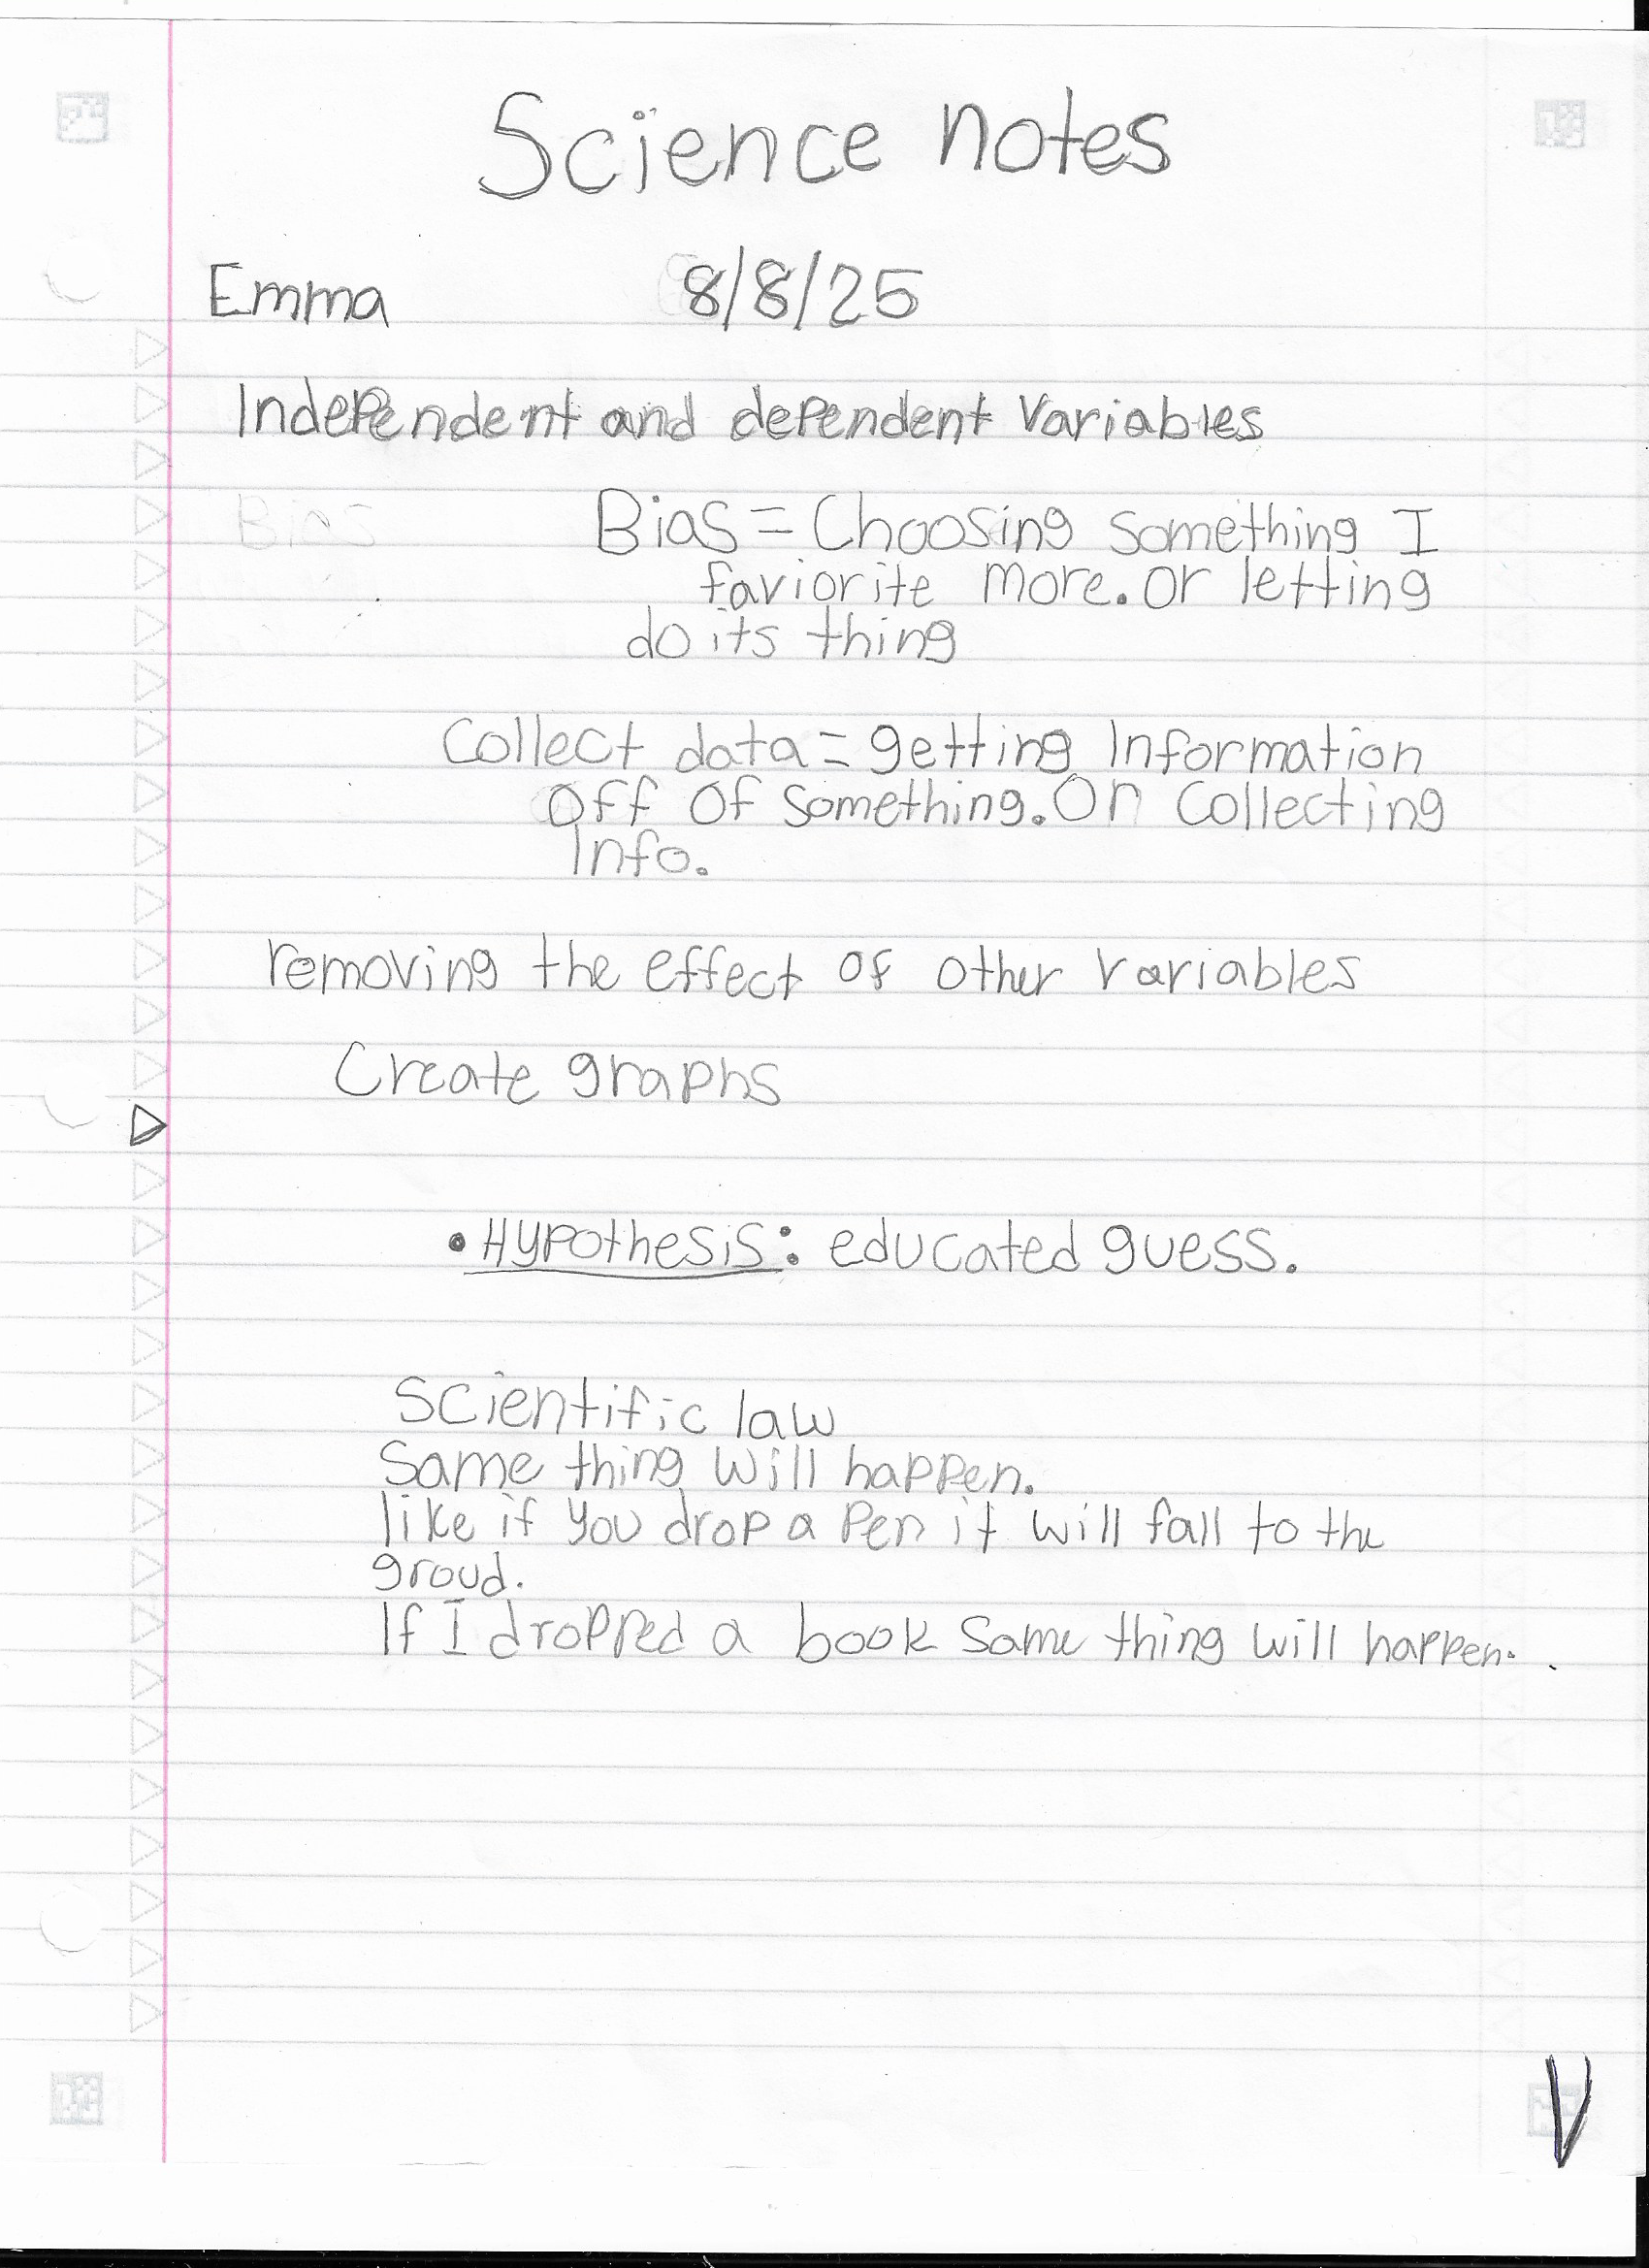 Science notes
Emma 8/8/25
Independent and dependent Variables
Bias Bias = Choosing something I
faviorite more. Or letting
do its thing
Collect data = getting Information
off of something. Or Collecting
Info.
removing the effect of other variables
Create graphs
• Hypothesis: educated guess.
Scientific law
Same thing will happen.
like if you drop a pen it will fall to the
groud.
If I dropped a book same thing will happen.
V